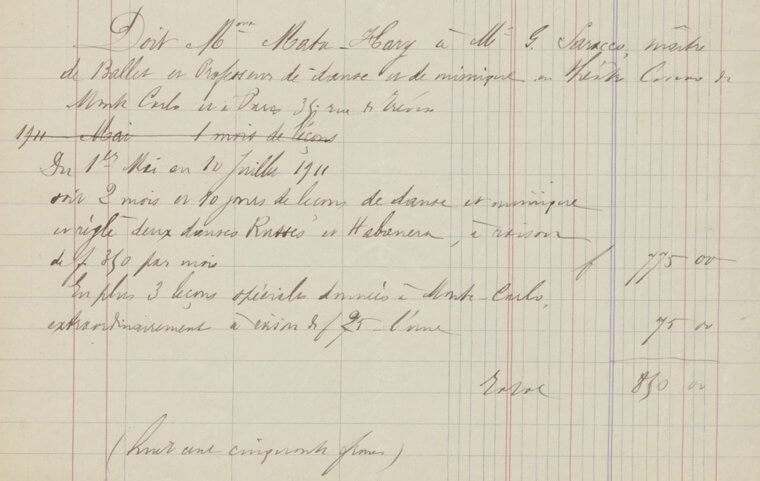 Doit Mme Mata-Hary à Mr G. Saracco, maître
de Ballet et Professeur de danse et de mimique au Théâtre Casino de
Monte Carlo et à Paris 35 rue de Trévise
1911 Mai 1 mois de leçons
Du 1er Mai au 10 Juillet 1911
soit 2 mois et 10 jours de leçons de danse et mimique
et réglé deux danses Russes et Habanera, à raison
de f. 350 par mois f 775 00
En plus 3 leçons spéciales données à Monte-Carlo,
extraordinairement à raison de f 25 l'une 75 00
Total 850 00
(huit cent cinquante francs)